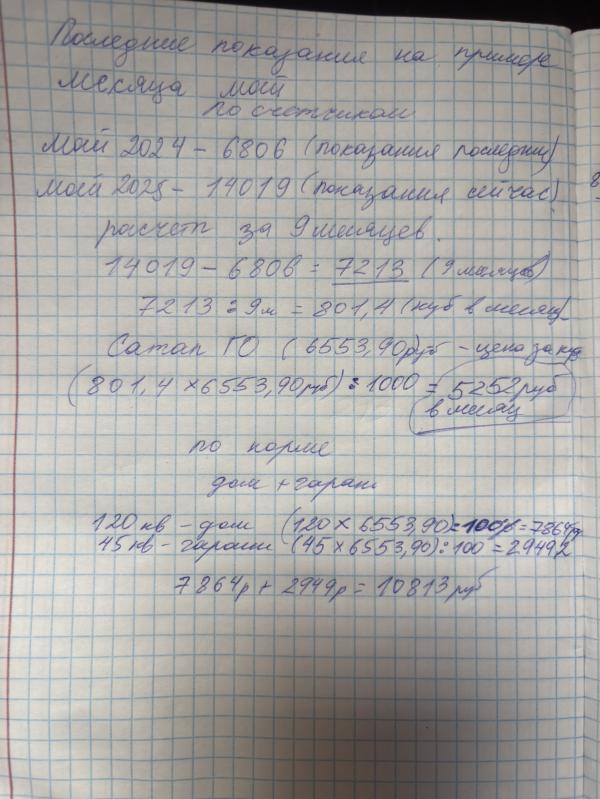 Последние показания на примере
месяца май
по счетчикам
Май 2024 - 6806 (показания последние)
Май 2025 - 14019 (показания сейчас)
расчет за 9 месяцев.
14019 - 6806 = 7213 (9 месяцев)
7213 : 9м = 801,4 (куб в месяц)
Сатап ГО (6553,90руб - цена за куб
(801,4 × 6553,90руб) : 1000 = 5252 руб
в месяц
по норме
дом + гараж
120 кв - дом (120 × 6553,90) : 100 = 7864р
45 кв - гараж (45 × 6553,90) : 100 = 29492
7864р + 2949р = 10813 руб